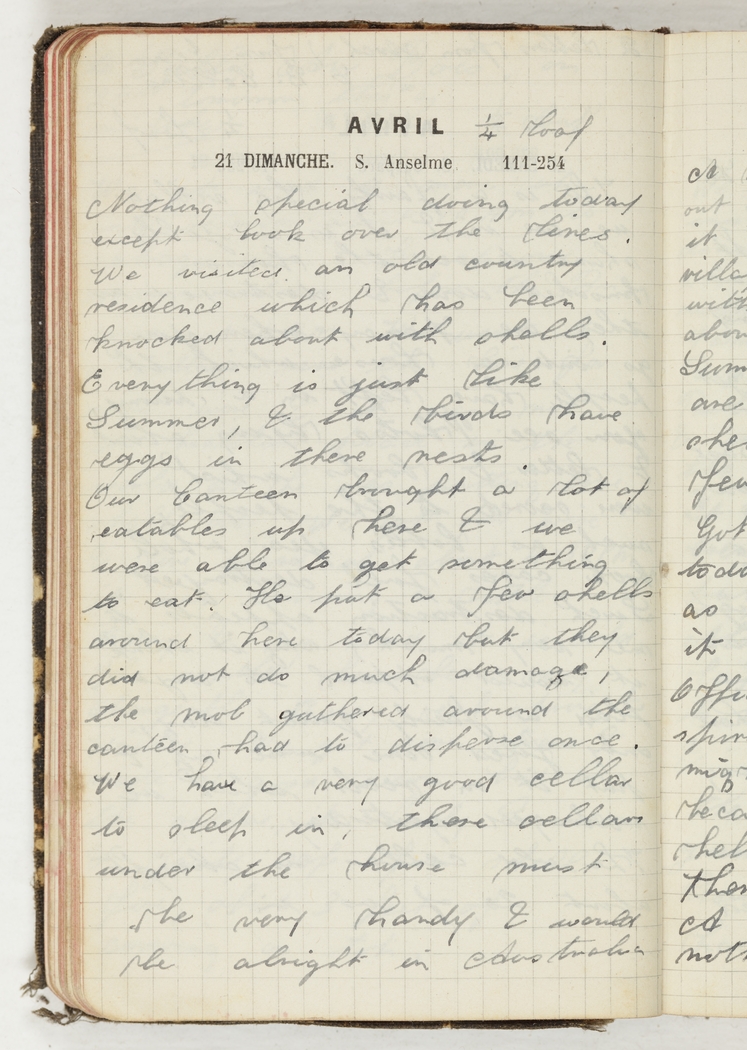 AVRIL 1/4 loaf
21 DIMANCHE. S. Anselme 111-254
Nothing special doing today
except look over the lines.
We visited an old country
residence which has been
knocked about with shells.
Everything is just like
Summer, & the birds have
eggs in there nests.
Our Canteen brought a lot of
eatables up here & we
were able to get something
to eat. He put a few shells
around here today but they
did not do much damage,
the mob gathered around the
canteen, had to disperse once.
We have a very good cellar
to sleep in, these cellars
under the house must
be very handy & would
be alright in Australia
A
out
it
villa
with
abou
Summ
are
shel
few
Got
toda
as
it
Offi
spir
mig
beca
hel
Then
A
noth